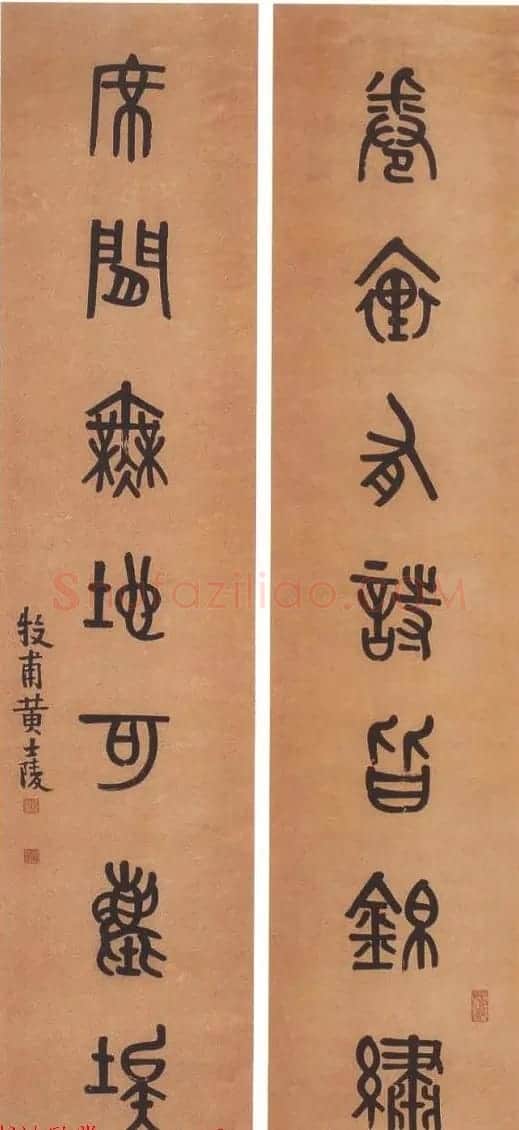 卷有詩皆錦繡
席間無地可塵埃
牧甫黃士陵
Shufaziliao.COM